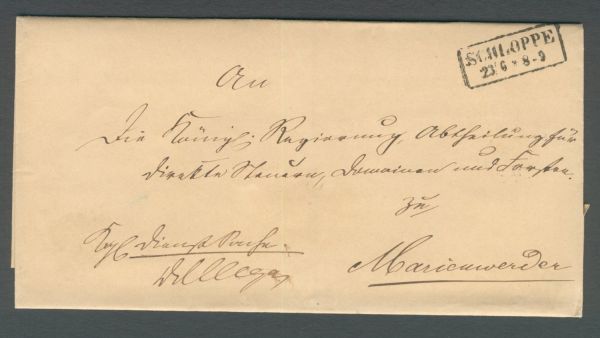 SCHLOPPE
23 6 * 8-9
An
Die Königl. Regierung, Abtheilung für
direkte Steuern, Domainen und Forsten.
zu
Marienwerder
Kgl. Dienst Sache